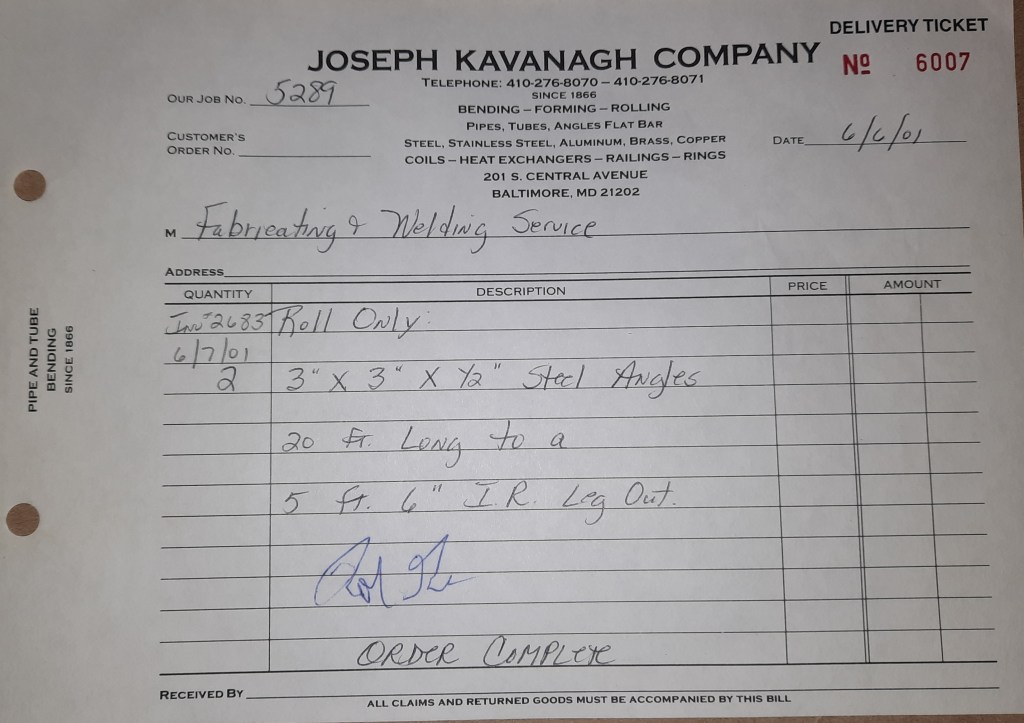 DELIVERY TICKET
JOSEPH KAVANAGH COMPANY
Nº 6007
TELEPHONE: 410-276-8070 – 410-276-8071
SINCE 1866
OUR JOB NO. 5289
BENDING – FORMING – ROLLING
PIPES, TUBES, ANGLES FLAT BAR
CUSTOMER'S
ORDER NO.
STEEL, STAINLESS STEEL, ALUMINUM, BRASS, COPPER
DATE 6/6/01
COILS – HEAT EXCHANGERS – RAILINGS – RINGS
201 S. CENTRAL AVENUE
BALTIMORE, MD 21202
M Fabricating & Welding Service
ADDRESS
QUANTITY DESCRIPTION PRICE AMOUNT
Inv# 2683 Roll Only:
6/7/01
2 3" X 3" X 1/2" Steel Angles
20 Ft. Long to a
5 ft. 6" I.R. Leg Out.
ORDER COMPLETE
RECEIVED BY
ALL CLAIMS AND RETURNED GOODS MUST BE ACCOMPANIED BY THIS BILL
PIPE AND TUBE
BENDING
SINCE 1866